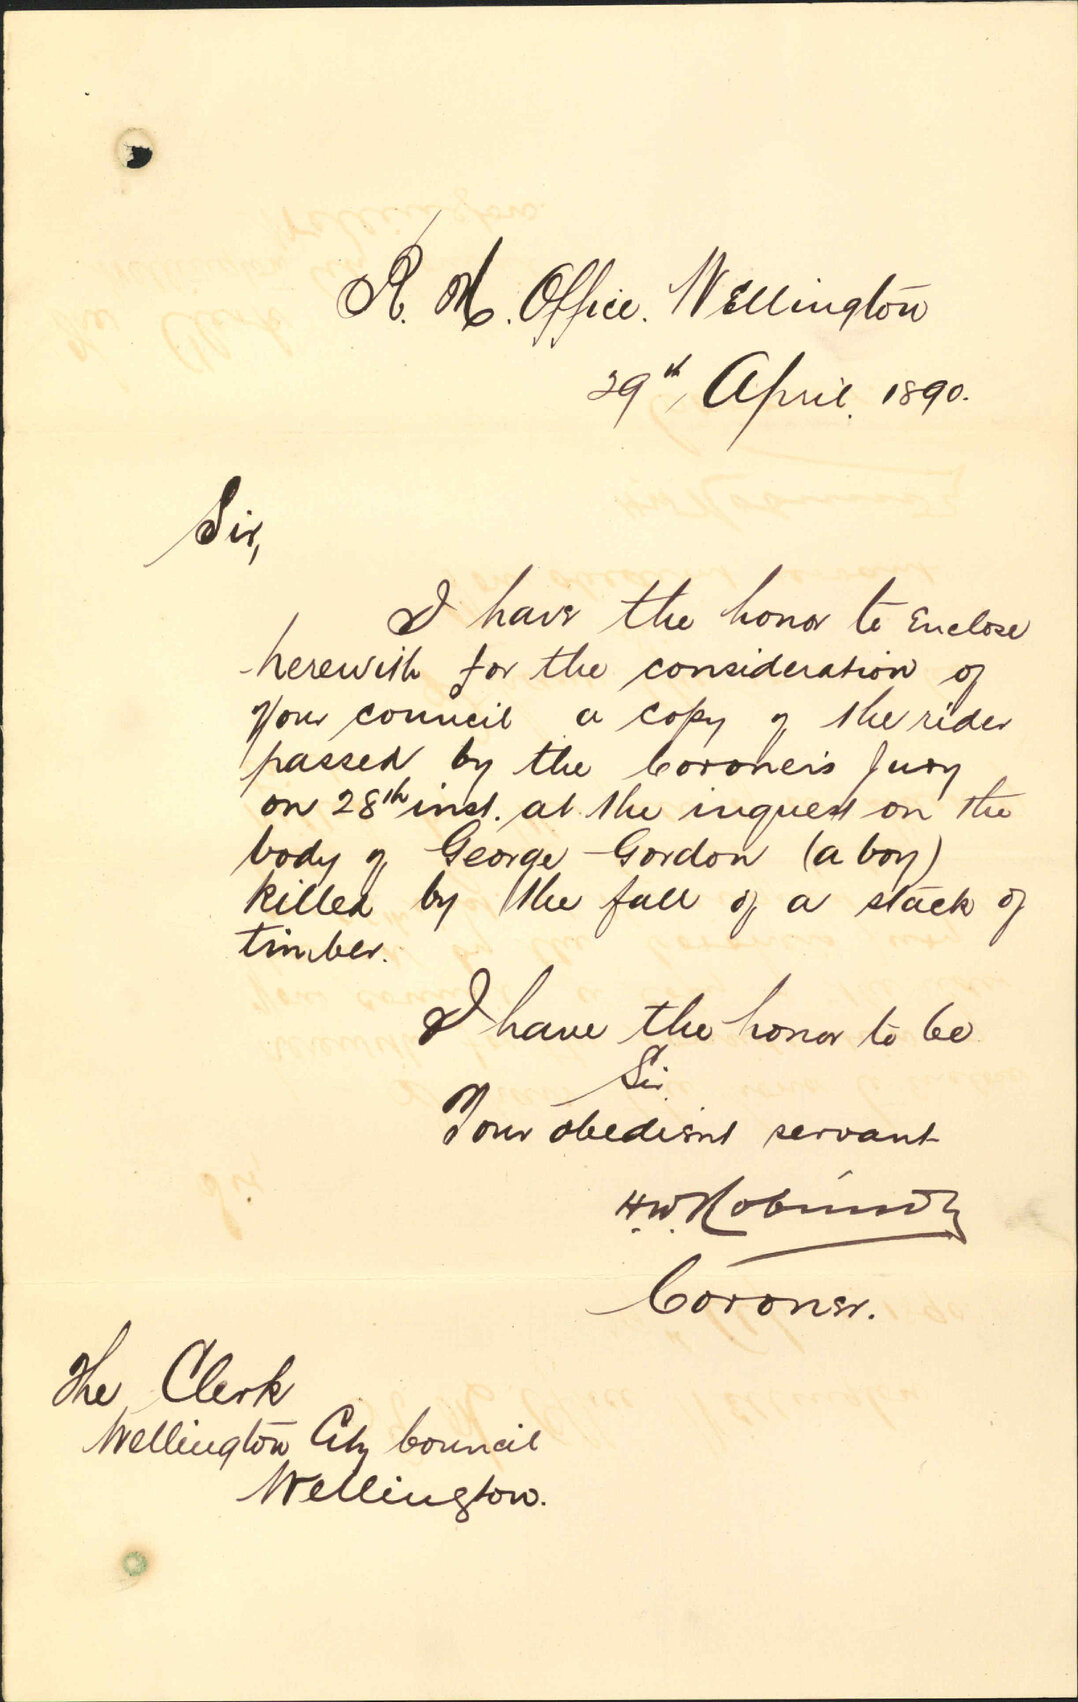 R. M. Office. Wellington
29th April. 1890.
Sir,
I have the honor to enclose
herewith for the consideration of
your council a copy of the rider
passed by the Coroner's Jury
on 28th inst. at the inquest on the
body of George Gordon (a boy)
killed by the fall of a stack of
timber.
I have the honor to be
Sir
Your obedient servant
H.W. Robinson
Coroner.
The Clerk
Wellington City Council
Wellington.